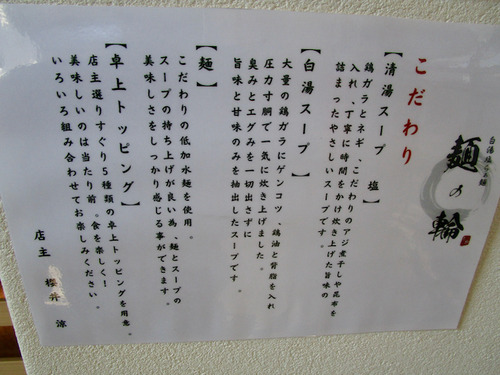 白湯塩らぁ麺
麺の輪
こだわり
【清湯スープ 塩】
鶏ガラとネギ、こだわりのアジ煮干しや昆布を
入れ、丁寧に時間をかけ炊き上げた旨味の
詰まったやさしいスープです。
【白湯スープ】
大量の鶏ガラにゲンコツ、鶏油と背脂を入れ
圧力寸胴で一気に炊き上げました。
臭みとエグみを一切出さずに
旨味と甘味のみを抽出したスープです。
【麺】
こだわりの低加水麺を使用。
スープの持ち上げが良い為、麺とスープの
美味しさをしっかり感じる事ができます。
【卓上トッピング】
店主選りすぐり5種類の卓上トッピングを用意。
美味しいのは当たり前。食を楽しく!
いろいろ組み合わせてお楽しみください。
店主 櫻井 涼